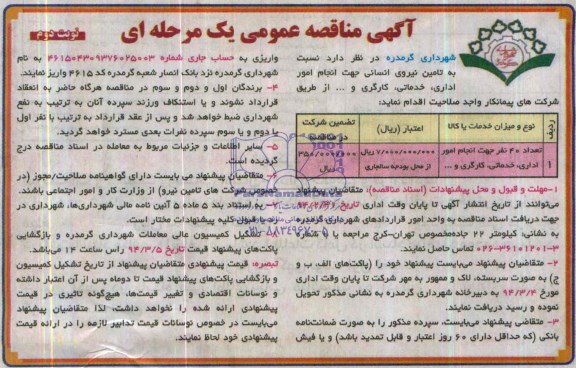 آگهی مناقصه عمومی یک مرحله ای
نوبت دوم
شهرداری گرمدره در نظر دارد نسبت
به تامین نیروی انسانی جهت انجام امور
اداری، خدماتی، کارگری و ... از طریق
شرکت های پیمانکار واجد صلاحیت اقدام نماید:
ردیف
نوع و میزان خدمات یا کالا
اعتبار (ریال)
تضمین شرکت
1
تعداد ۴۰ نفر جهت انجام امور
اداری، خدماتی، کارگری و ...
۷/۰۰۰/۰۰۰/۰۰۰ ریال
از محل بودجه سالجاری
۳۵۰/۰۰۰/۰۰۰
ریال
۱-مهلت و قبول و محل پیشنهادات (اسناد مناقصه): متقاضیان پیشنهاد
می‌توانند از تاریخ انتشار آگهی تا پایان وقت اداری تاریخ
جهت دریافت اسناد مناقصه به واحد امور قراردادهای شهرداری گرمدره
به نشانی: کیلومتر ۲۲ جاده‌مخصوص تهران-کرج مراجعه یا با شماره
۳-۳۶۱۰۱۲۰۱-۰۲۶ تماس حاصل نمایند.
۲- متقاضیان پیشنهاد می‌بایست پیشنهاد خود را (پاکت‌های الف، ب و
ج) به صورت سربسته، لاک و ممهور به مهر شرکت تا پایان وقت اداری
مورخ ۹۴/۳/۴ به دبیرخانه شهرداری گرمدره به نشانی مذکور تحویل
نموده و رسید دریافت نمایند.
۳- متقاضی پیشنهاد می‌بایست، سپرده مذکور را به صورت ضمانت‌نامه
بانکی (که حداقل دارای ۶۰ روز اعتبار و قابل تمدید باشد) و یا فیش
واریزی به حساب جاری شماره ۴۶۱۵۰۴۳۰۹۳۷۶۰۲۵۰۰۳ به نام
شهرداری گرمدره نزد بانک انصار شعبه گرمدره کد ۴۶۱۵ واریز نمایند.
۴- برندگان اول و دوم و سوم در مناقصه هرگاه حاضر به انعقاد
قرارداد نشوند و یا استنکاف ورزند سپرده آنان به ترتیب به نفع
شهرداری ضبط خواهد شد و پس از عقد قرارداد به ترتیب با نفر اول
یا دوم و یا سوم سپرده نفرات بعدی مسترد خواهد گردید.
۵- سایر اطلاعات و جزئیات مربوط به معامله در اسناد مناقصه درج
گردیده است.
۶- متقاضیان پیشنهاد می بایست دارای گواهینامه صلاحیت/مجوز (در
خصوص شرکت های تامین نیرو) از وزارت کار و امور اجتماعی باشند.
۷- به استناد بند ۵ ماده ۵ آئین نامه مالی شهرداری‌ها، شهرداری در
رد یا قبول کلیه پیشنهادات مختار است.
تشکیل کمیسیون عالی معاملات شهرداری گرمدره و بازگشایی
پاکت‌های پیشنهاد قیمت تاریخ ۹۴/۳/۵ راس ساعت ۱۴ می‌باشد.
تبصره: قیمت پیشنهادی متقاضیان پیشنهاد از تاریخ تشکیل کمیسیون
و بازگشایی پاکت‌های پیشنهاد قیمت تا دوماه پس از آن اعتبار داشته
و نوسانات اقتصادی و تغییر قیمت‌ها، هیچ‌گونه تاثیری در قیمت
پیشنهادی ارائه شده را نخواهد داشت، لذا متقاضیان پیشنهاد
می‌بایست در خصوص نوسانات قیمت تدابیر لازمه را در ارائه قیمت
پیشنهادی خود لحاظ نمایند.